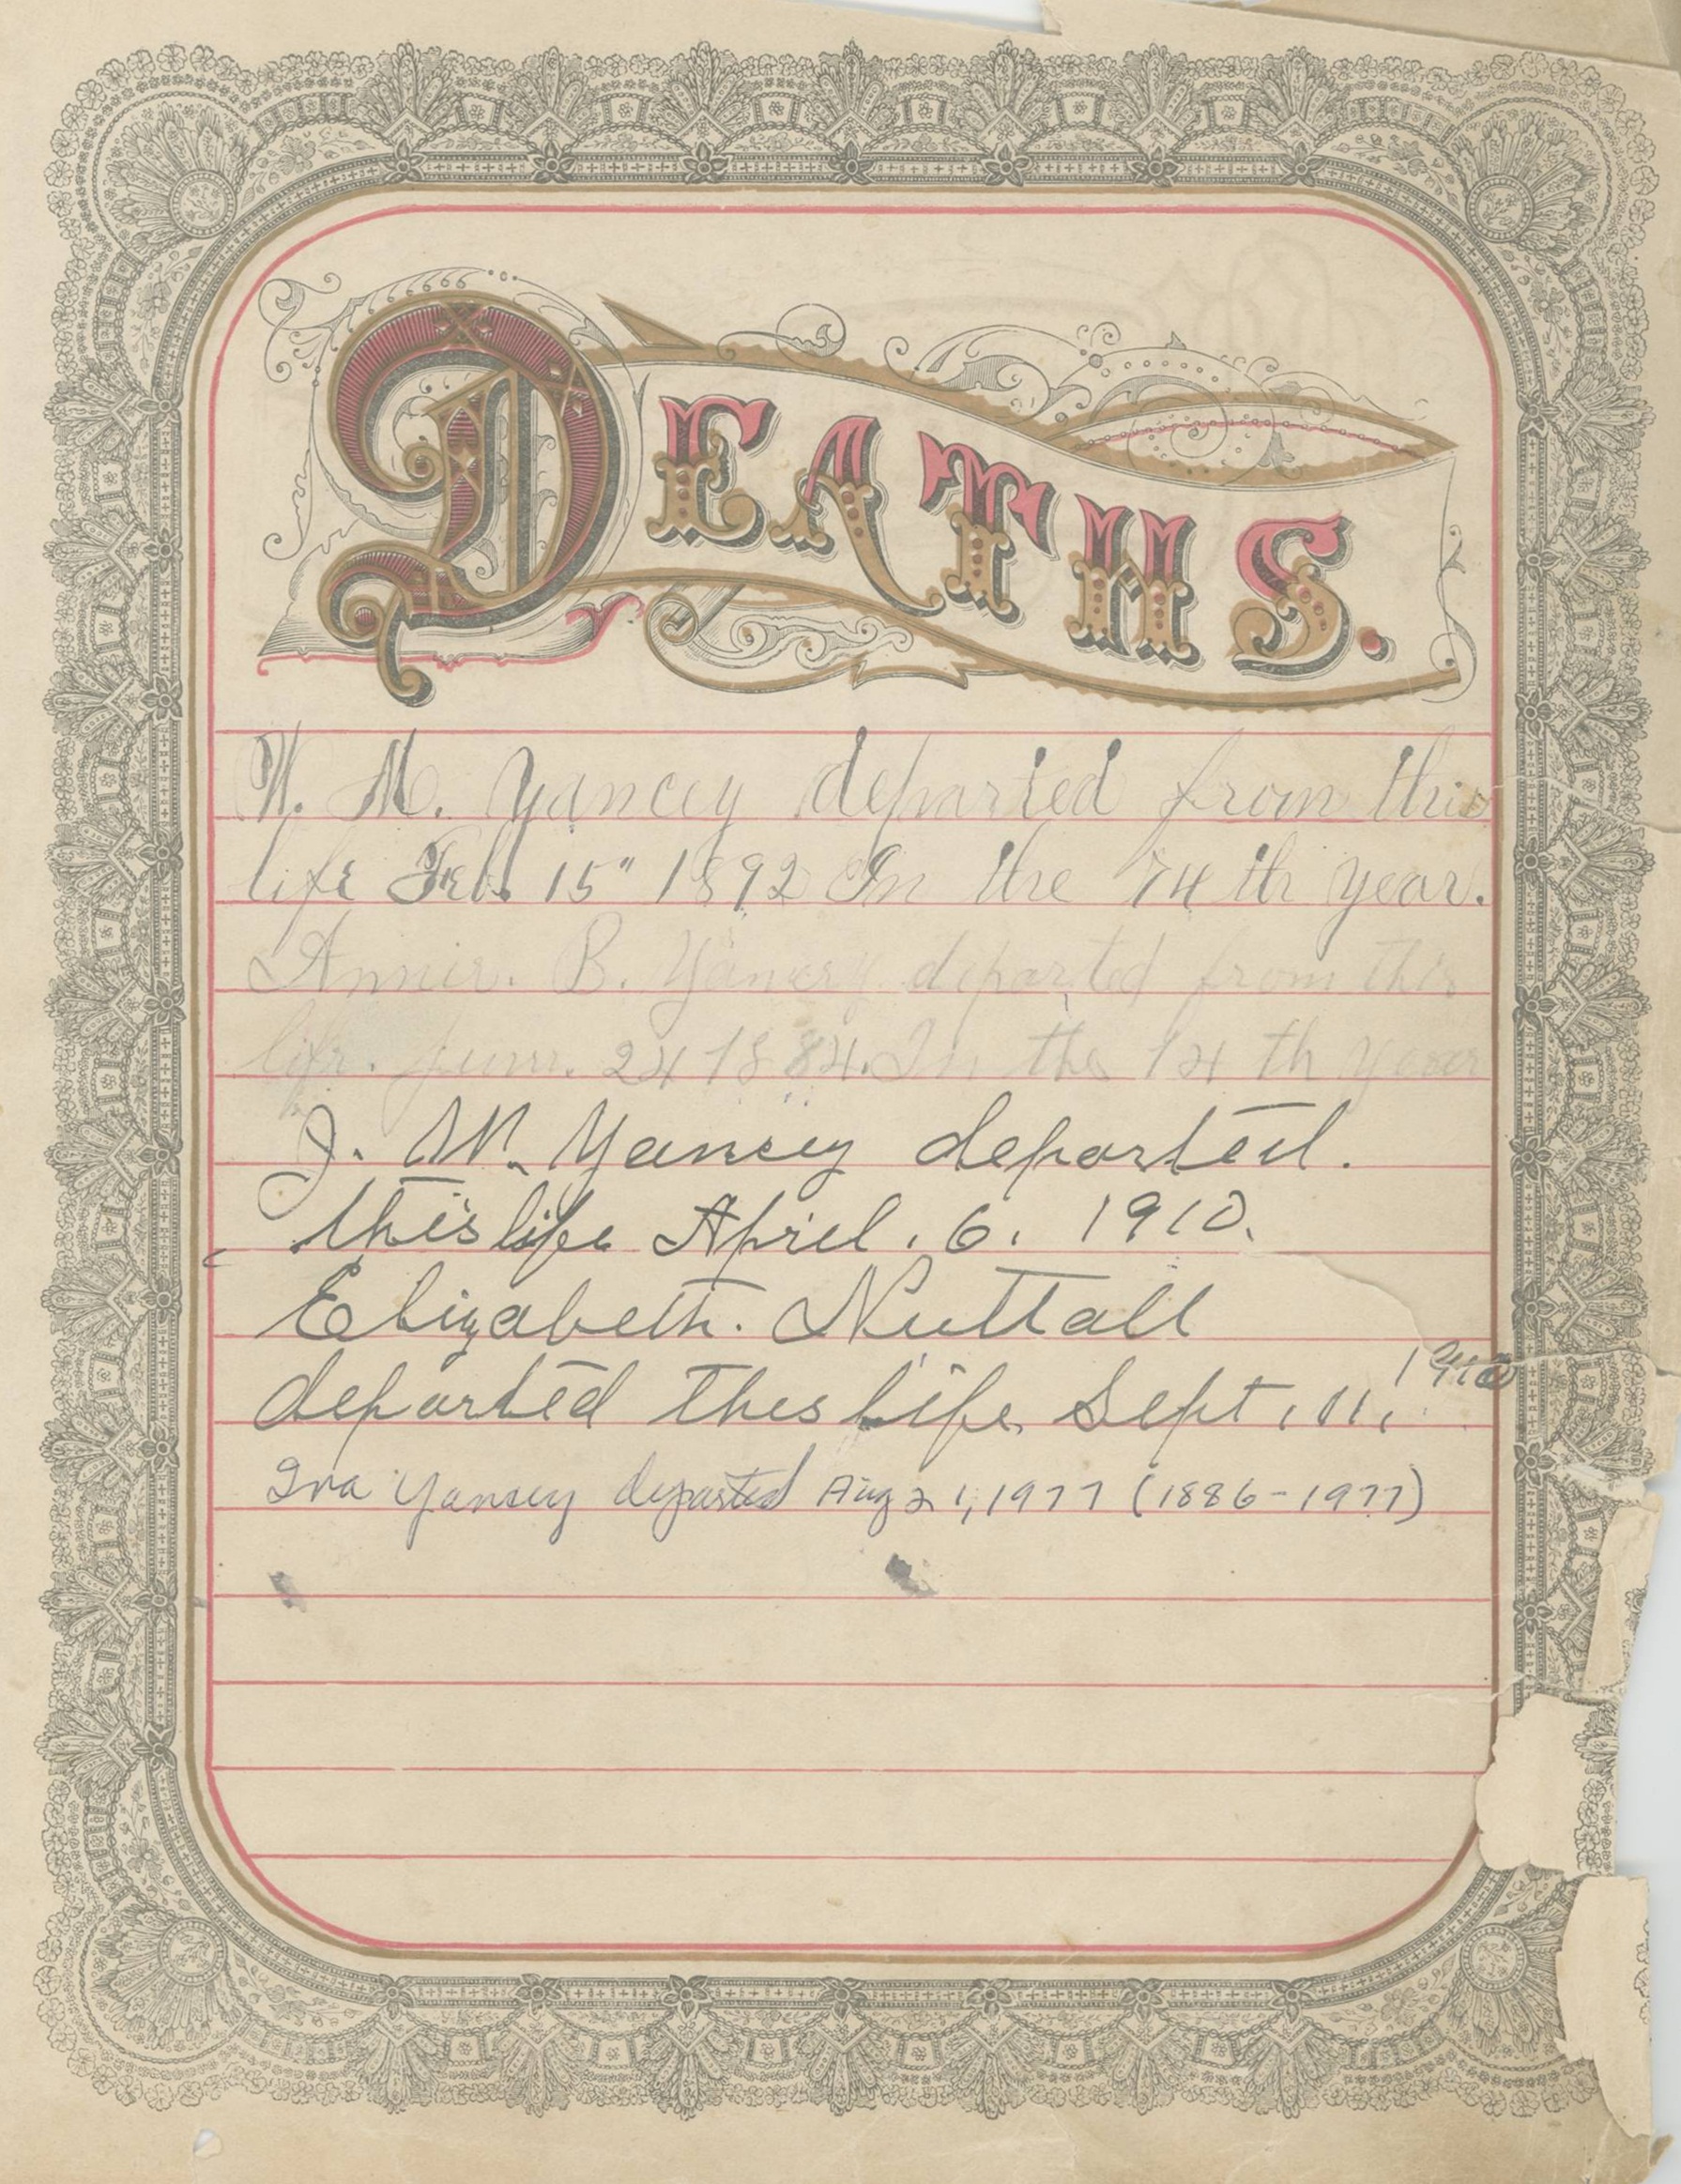 DEATHS.
W. M. Yancey departed from this
life Feb. 15" 1892 In the 74 th year.
Annie. B. Yancey departed from this
life. June. 24 1884. In the 14 th year
J. W. Yancey departed.
this life April. 6. 1910.
Elizabeth. Nuttall
departed this life Sept. 11, 1910
Iva Yancey departed Aug 21, 1977 (1886-1977)